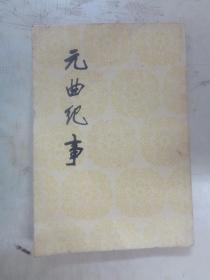 元曲纪事